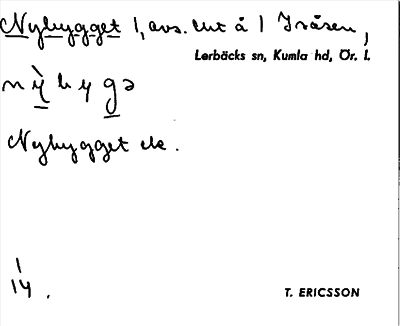 Nybygget 1, avs. lht å 1 Tråsen,
Lerbäcks sn, Kumla hd, Ör. l.
nỳbygə
Nybygget ek.
1
14.
T. ERICSSON